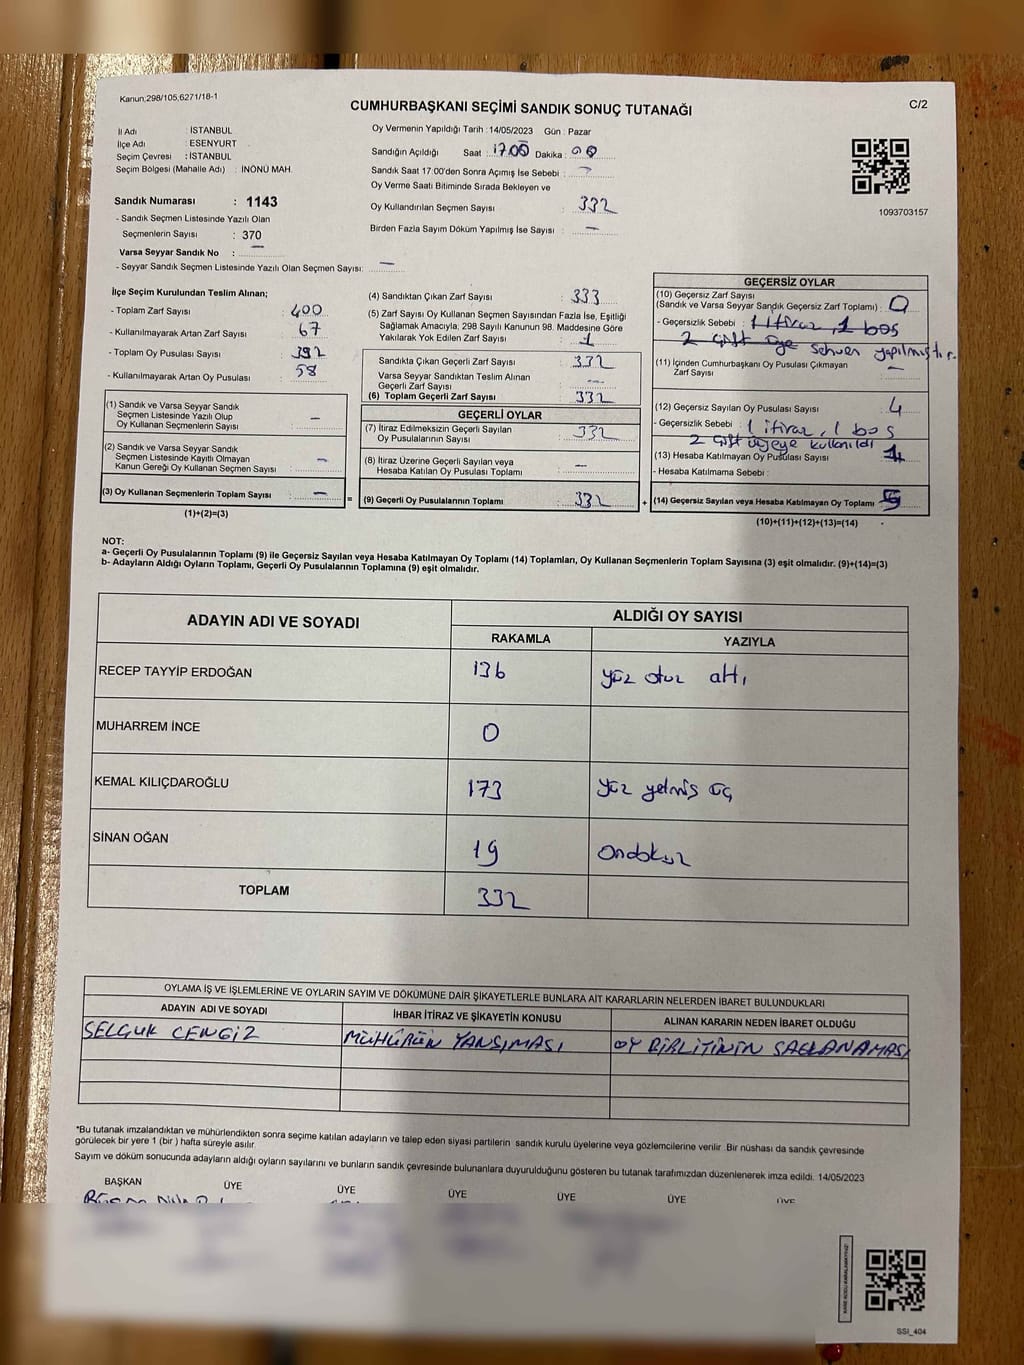 Kanun;298/105,6271/18-1
CUMHURBAŞKANI SEÇİMİ SANDIK SONUÇ TUTANAĞI
C/2
İl Adı : İSTANBUL
İlçe Adı : ESENYURT
Seçim Çevresi : İSTANBUL
Seçim Bölgesi (Mahalle Adı) : İNÖNÜ MAH.
Sandık Numarası : 1143
- Sandık Seçmen Listesinde Yazılı Olan
Seçmenlerin Sayısı : 370
Varsa Seyyar Sandık No : —
- Seyyar Sandık Seçmen Listesinde Yazılı Olan Seçmen Sayısı: —
Oy Vermenin Yapıldığı Tarih : 14/05/2023 Gün : Pazar
Sandığın Açıldığı Saat : 17:00 Dakika : 00
Sandık Saat 17:00'den Sonra Açımış İse Sebebi : —
Oy Verme Saati Bitiminde Sırada Bekleyen ve
Oy Kullandırılan Seçmen Sayısı : 332
Birden Fazla Sayım Döküm Yapılmış İse Sayısı : —
1093703157
İlçe Seçim Kurulundan Teslim Alınan;
- Toplam Zarf Sayısı : 400
- Kullanılmayarak Artan Zarf Sayısı : 67
- Toplam Oy Pusulası Sayısı : 392
- Kullanılmayarak Artan Oy Pusulası : 58
(1) Sandık ve Varsa Seyyar Sandık
Seçmen Listesinde Yazılı Olup
Oy Kullanan Seçmenlerin Sayısı : —
(2) Sandık ve Varsa Seyyar Sandık
Seçmen Listesinde Kayıtlı Olmayan
Kanun Gereği Oy Kullanan Seçmen Sayısı : —
(3) Oy Kullanan Seçmenlerin Toplam Sayısı : — =
(1)+(2)=(3)
(4) Sandıktan Çıkan Zarf Sayısı : 333
(5) Zarf Sayısı Oy Kullanan Seçmen Sayısından Fazla İse, Eşitliği
Sağlamak Amacıyla; 298 Sayılı Kanunun 98. Maddesine Göre
Yakılarak Yok Edilen Zarf Sayısı : 1
Sandıkta Çıkan Geçerli Zarf Sayısı : 332
Varsa Seyyar Sandıktan Teslim Alınan
Geçerli Zarf Sayısı : —
(6) Toplam Geçerli Zarf Sayısı : 332
GEÇERLİ OYLAR
(7) İtiraz Edilmeksizin Geçerli Sayılan
Oy Pusulalarının Sayısı : 332
(8) İtiraz Üzerine Geçerli Sayılan veya
Hesaba Katılan Oy Pusulası Toplamı : —
(9) Geçerli Oy Pusulalarının Toplamı : 332 +
GEÇERSİZ OYLAR
(10) Geçersiz Zarf Sayısı
(Sandık ve Varsa Seyyar Sandık Geçersiz Zarf Toplamı) : 0
- Geçersizlik Sebebi : 1 itiraz, 1 boş
2 çift üye sehven yapılmıştır.
(11) İçinden Cumhurbaşkanı Oy Pusulası Çıkmayan
Zarf Sayısı : —
(12) Geçersiz Sayılan Oy Pusulası Sayısı : 4
- Geçersizlik Sebebi : 1 itiraz, 1 boş
2 çift üyeye kullanıldı
(13) Hesaba Katılmayan Oy Pusulası Sayısı :
- Hesaba Katılmama Sebebi :
(14) Geçersiz Sayılan veya Hesaba Katılmayan Oy Toplamı : 5
(10)+(11)+(12)+(13)=(14)
NOT:
a- Geçerli Oy Pusulalarının Toplamı (9) ile Geçersiz Sayılan veya Hesaba Katılmayan Oy Toplamı (14) Toplamları, Oy Kullanan Seçmenlerin Toplam Sayısına (3) eşit olmalıdır. (9)+(14)=(3)
b- Adayların Aldığı Oyların Toplamı, Geçerli Oy Pusulalarının Toplamına (9) eşit olmalıdır.
ADAYIN ADI VE SOYADI
ALDIĞI OY SAYISI
RAKAMLA YAZIYLA
RECEP TAYYİP ERDOĞAN 136 yüz otuz altı
MUHARREM İNCE 0
KEMAL KILIÇDAROĞLU 173 yüz yetmiş üç
SİNAN OĞAN 19 ondokuz
TOPLAM 332
OYLAMA İŞ VE İŞLEMLERİNE VE OYLARIN SAYIM VE DÖKÜMÜNE DAİR ŞİKAYETLERLE BUNLARA AİT KARARLARIN NELERDEN İBARET BULUNDUKLARI
ADAYIN ADI VE SOYADI İHBAR İTİRAZ VE ŞİKAYETİN KONUSU ALINAN KARARIN NEDEN İBARET OLDUĞU
SELÇUK CENGİZ MÜHÜRÜN YANSIMASI OY BİRLİĞİNİN SAĞLANAMASI
*Bu tutanak imzalandıktan ve mühürlendikten sonra seçime katılan adayların ve talep eden siyasi partilerin sandık kurulu üyelerine veya gözlemcilerine verilir. Bir nüshası da sandık çevresinde
görülecek bir yere 1 (bir ) hafta süreyle asılır.
Sayım ve döküm sonucunda adayların aldığı oyların sayılarını ve bunların sandık çevresinde bulunanlara duyurulduğunu gösteren bu tutanak tarafımızdan düzenlenerek imza edildi. 14/05/2023
BAŞKAN ÜYE ÜYE ÜYE ÜYE ÜYE ÜYE
SSI_404